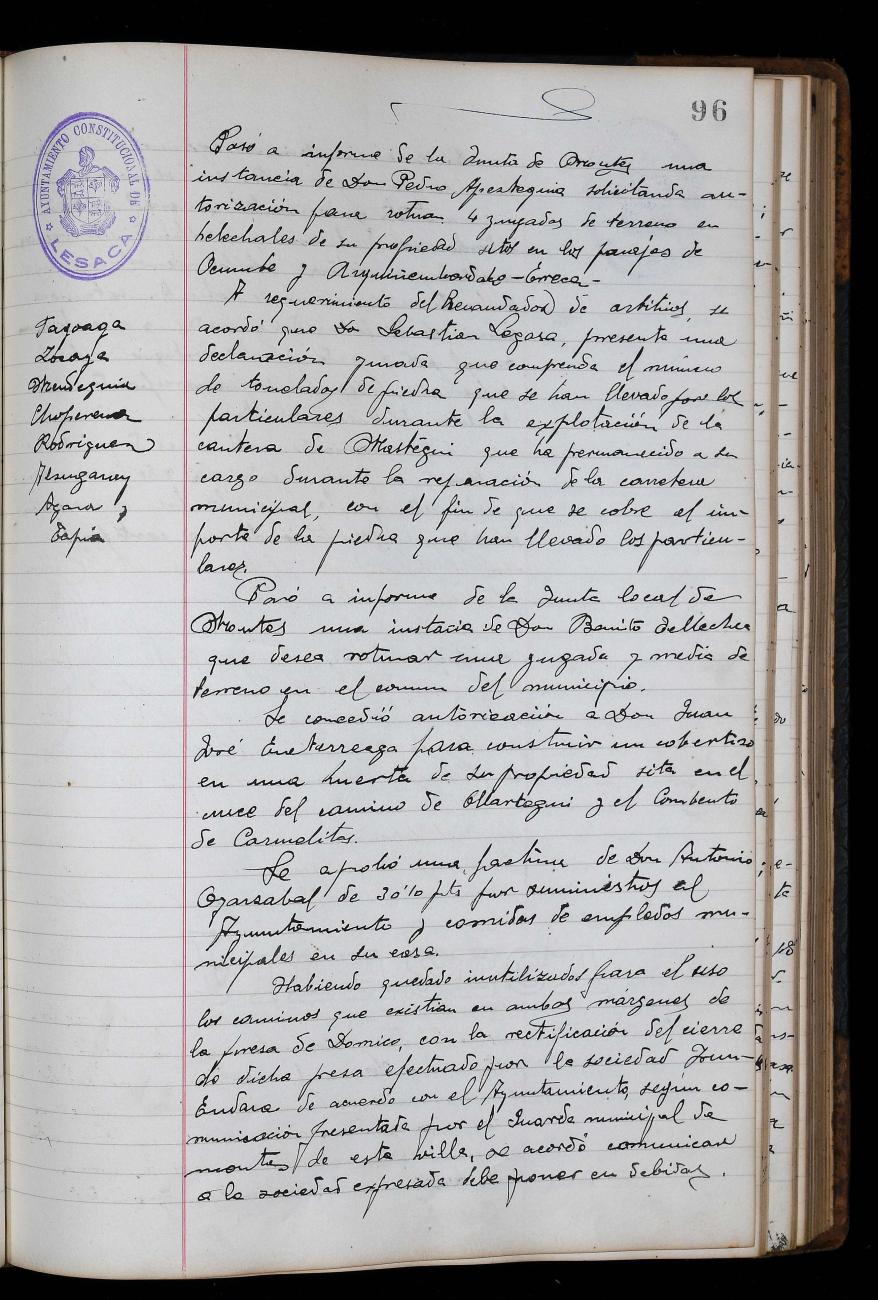 96
AYUNTAMIENTO CONSTITUCIONAL DE
LESACA
Pasó a informe de la Junta de Montes una
instancia de Don Pedro Apestegia solicitando au-
torización para roturar 4 yugadas de terreno en
helechales de su propiedad sitos en los parajes de
y Erreca-
A requerimiento del Recaudador de arbitrios, se
acordó que Don Sebastian Legasa, presente una
declaración jurada que comprenda el número
de toneladas de piedra que se han llevado por los
particulares durante la explotación de la
cantera de que ha permanecido a su
cargo durante la reparación de la carretera
municipal, con el fin de que se cobre el im-
porte de la piedra que han llevado los particu-
lares.
Pasó a informe de la Junta local de
Montes una instacia de Don Benito Tellechea
que desea roturar una yugada y media de
terreno en el comun del municipio.
Se concedió autorización a Don Juan
José para construir un cobertizo
en una huerta de su propiedad sita en el
cruce del camino de y el Combento
de Carmelitas.
Se aprobó una factura de Don Antonio
Oyarzabal de 30'10 pts por suministros al
Ayuntamiento y comidas de empledos mu-
nicipales en su casa.
Habiendo quedado inutilizados para el uso
los caminos que existian en ambas márgenes de
la presa de Domico, con la rectificación del cierre
de dicha presa efectuado por la sociedad Irun-
Endara de acuerdo con el Ayuntamiento, según co-
municación presentada por el Guarda municipal de
montes de esta villa, se acordó comunicar
a la sociedad expresada debe poner en debidas
Taberna
Zocaya
Mendeguia
Choperena
Rodriguez
Agara y
Tapia